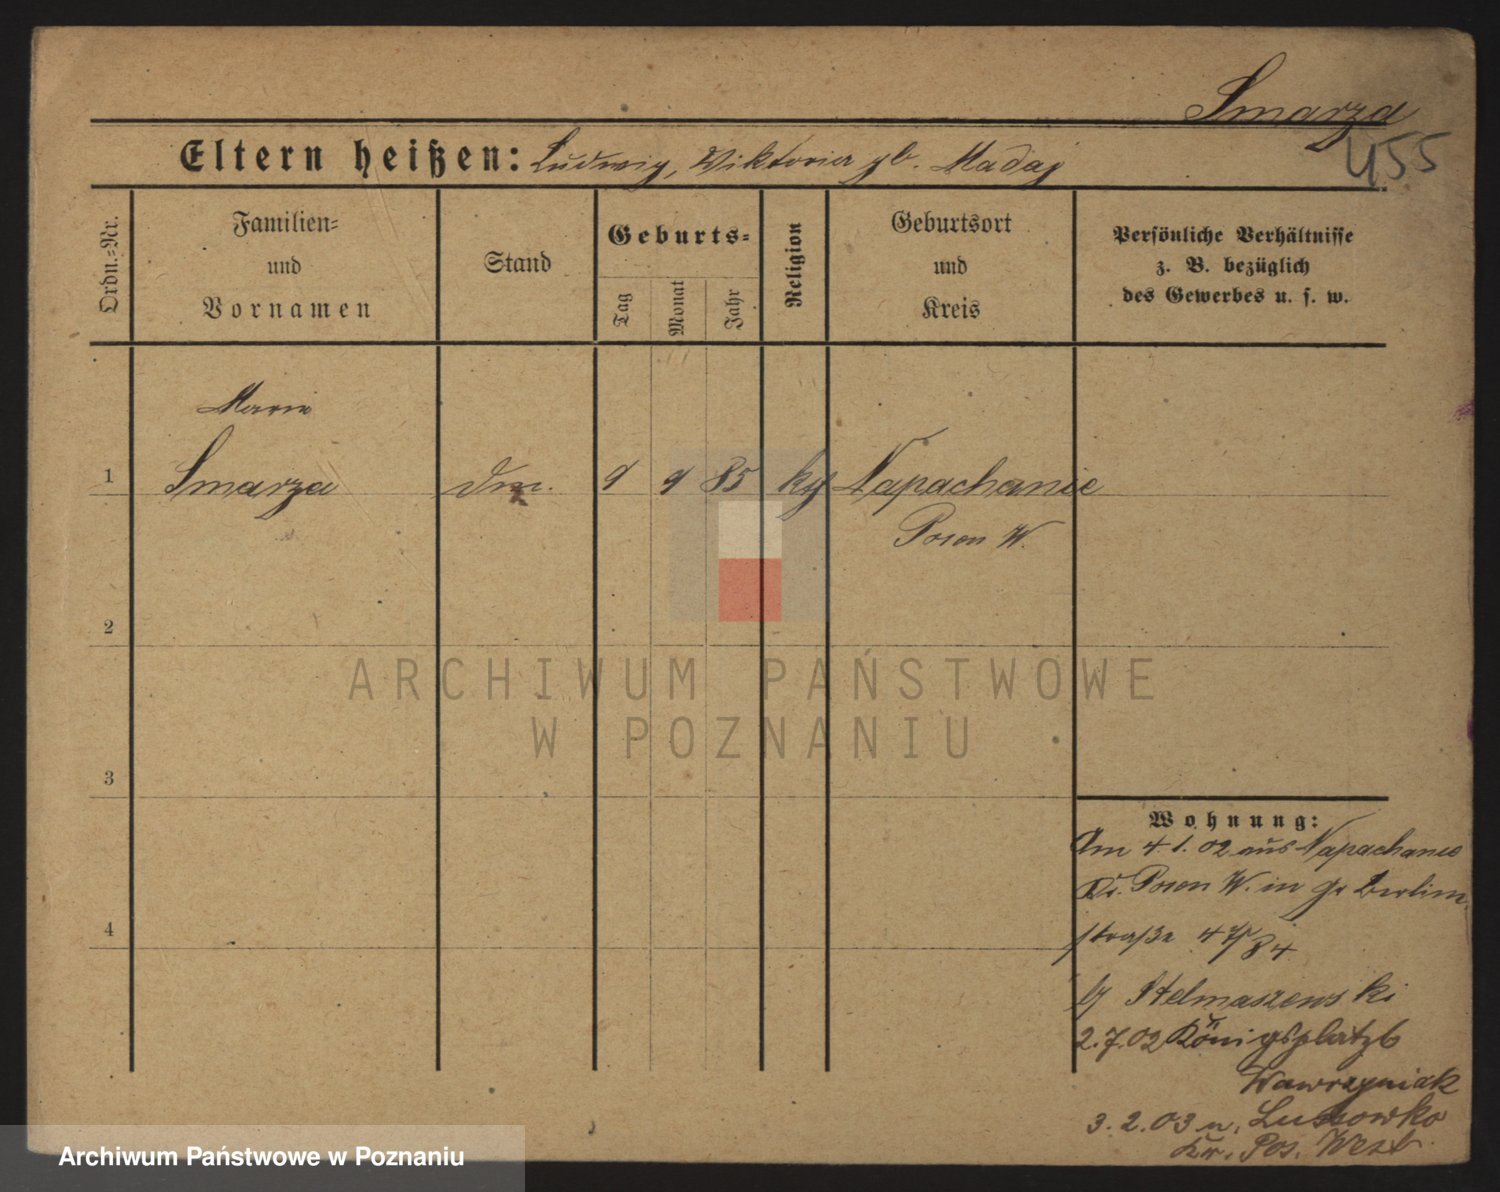 Smarza
455
Eltern heißen: Ludwig, Wiktoria gb. Madaj
Ordn.-Nr.
Familien-
und
Vornamen
Stand
Geburts-
Tag
Monat
Jahr
Religion
Geburtsort
und
Kreis
Persönliche Verhältnisse
z. B. bezüglich
des Gewerbes u. s. w.
Marie
1 Smarza 9 9 85 Napachanie
Posen W.
2
ARCHIWUM PAŃSTWOWE
W POZNANIU
3
Wohnung:
Am 4.1.02 aus Napachanie
Kr. Posen W. in Gr Berlin
straße
b/ Stelmaszewski
2.7.02 Königsplatz 6
Wawrzyniak
4
3.2.03 n. Lussowko
Kr. Pos. West
Archiwum Państwowe w Poznaniu